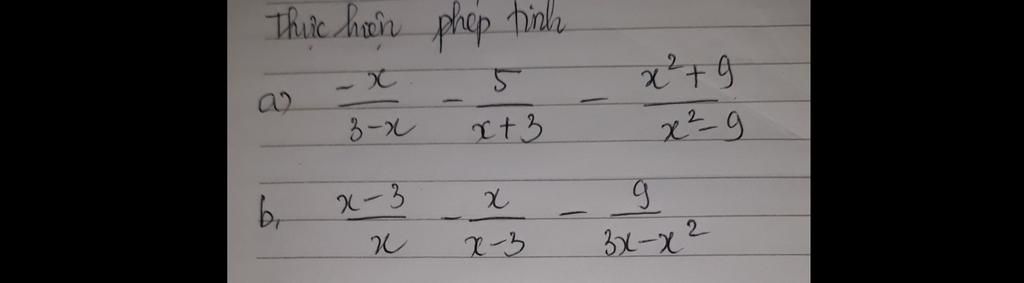 Thực hiện phép tính
a) \frac{-x}{3-x} - \frac{5}{x+3} - \frac{x^2+9}{x^2-9}
b, \frac{x-3}{x} - \frac{x}{x-3} - \frac{9}{3x-x^2}